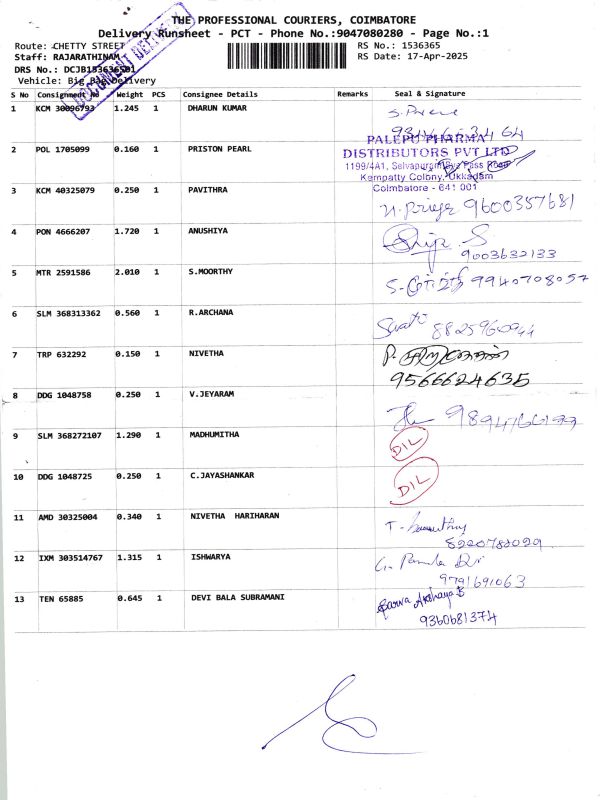 THE PROFESSIONAL COURIERS, COIMBATORE
Delivery Runsheet - PCT - Phone No.:9047080280 - Page No.:1
Route: CHETTY STREET
RS No.: 1536365
Staff: RAJARATHINAM
RS Date: 17-Apr-2025
DRS No.: DCJB153636501
Vehicle: Big Bag Delivery
DOCUMENT DELIVERY
S No Consignment No Weight PCS Consignee Details Remarks Seal & Signature
1 KCM 30096793 1.245 1 DHARUN KUMAR
2 POL 1705099 0.160 1 PRISTON PEARL
PALEPU PHARMA
DISTRIBUTORS PVT LTD
1199/4A1, Selvapuram Bye Pass Road
Kempatty Colony, Ukkadam
Coimbatore - 641 001
3 KCM 40325079 0.250 1 PAVITHRA 9600357681
4 PON 4666207 1.720 1 ANUSHIYA 9003632133
5 MTR 2591586 2.010 1 S.MOORTHY 9940708057
6 SLM 368313362 0.560 1 R.ARCHANA
7 TRP 632292 0.150 1 NIVETHA
9566624635
8 DDG 1048758 0.250 1 V.JEYARAM
9 SLM 368272107 1.290 1 MADHUMITHA DIL
10 DDG 1048725 0.250 1 C.JAYASHANKAR DIL
11 AMD 30325004 0.340 1 NIVETHA HARIHARAN
12 IXM 303514767 1.315 1 ISHWARYA
9791691063
13 TEN 65885 0.645 1 DEVI BALA SUBRAMANI
9360681374